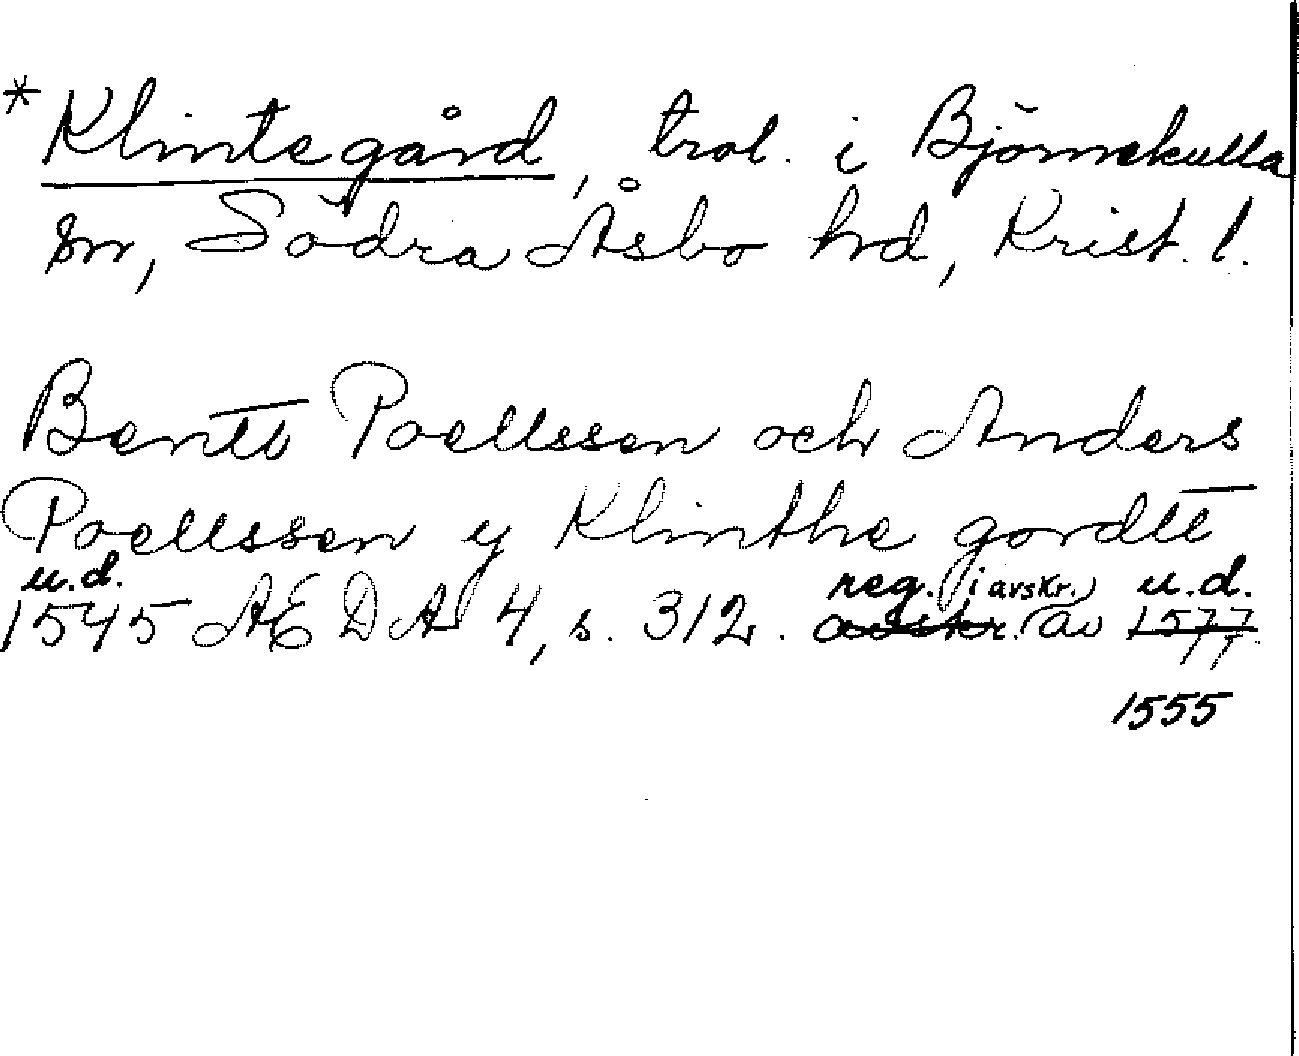 *Klintegård, trol. i Björnekulla
sn, Södra Åsbo hd, Krist. l.
Bentt Poellssen och Anders
Poellssen y Klinthe gordtt
u.d. reg. (i avskr.) u.d.
1545 AEDA 4, s. 312. avskr. av 1577
1555